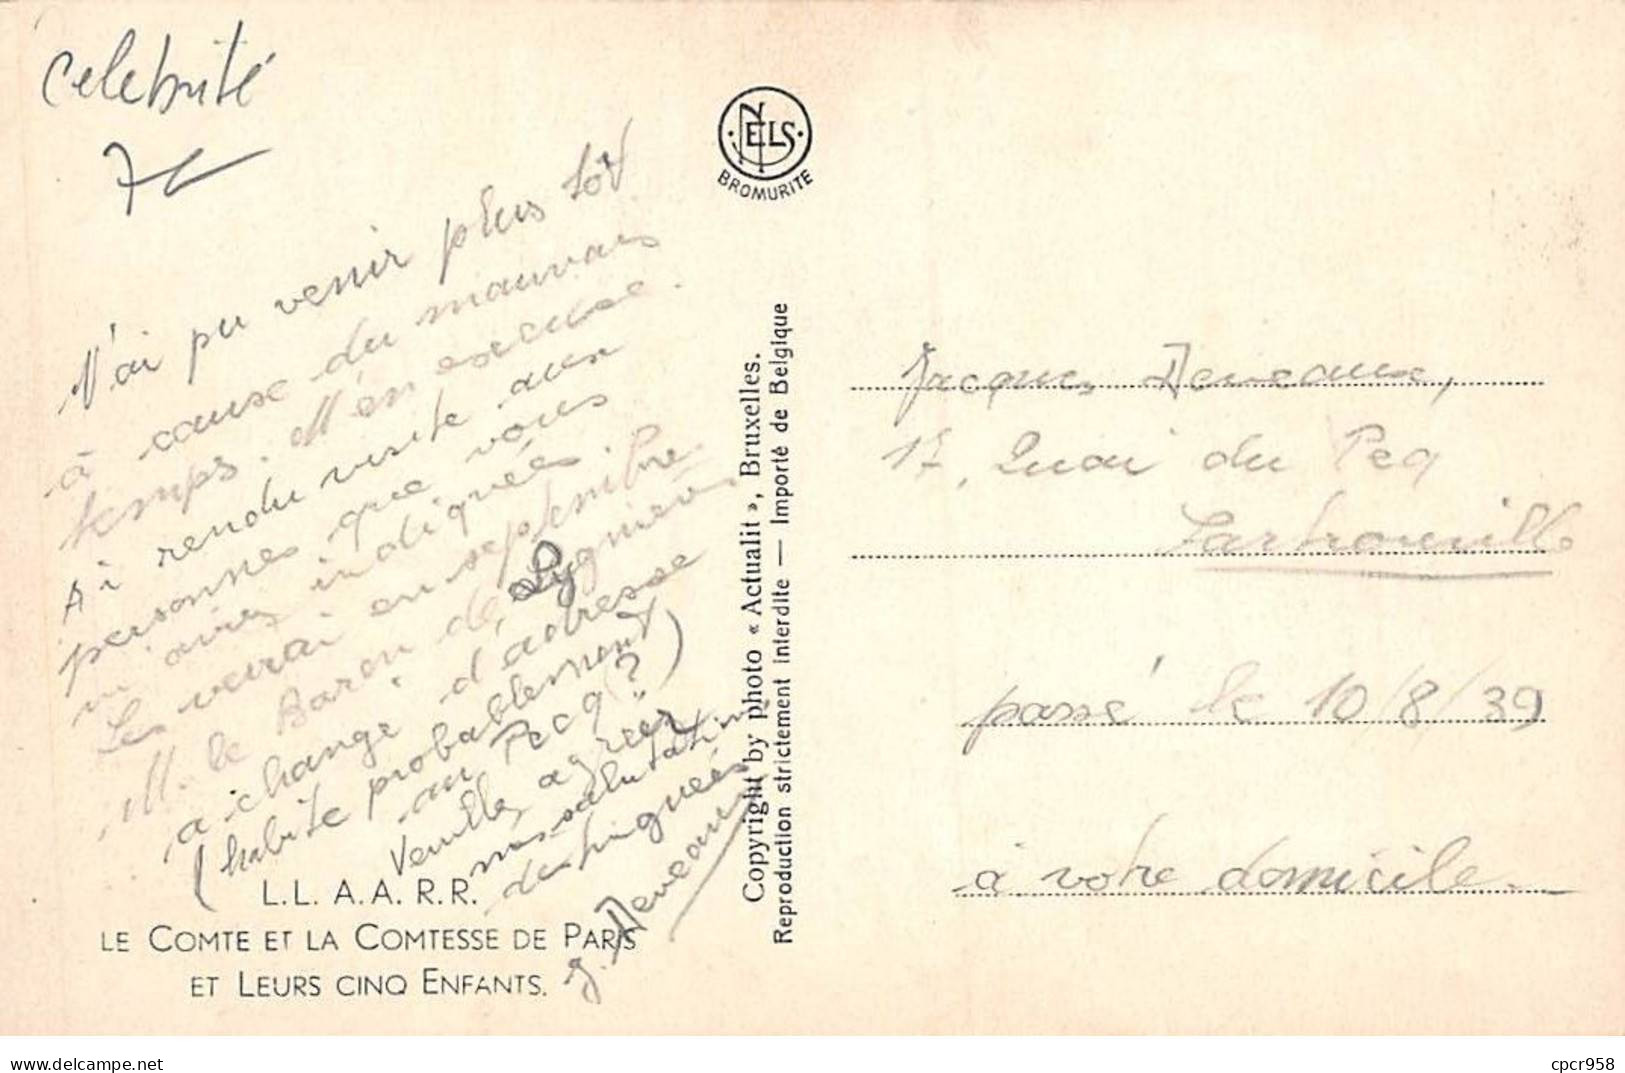 Celebrité
N'ai pu venir plus tôt
à cause du mauvais
temps. M'en excuse.
Ai rendu visite aux
personnes que vous
m'aviez indiquées.
Les verrai en septembre
M. le Baron de
a changé d'adresse
(habite probablement
au Pecq?)
Veuillez agréer
mes salutations
distinguées
J. Deveaux
L.L. A.A. R.R.
LE COMTE ET LA COMTESSE DE PARIS
ET LEURS CINQ ENFANTS.
NELS
BROMURITE
Copyright by photo « Actualit », Bruxelles.
Reproduction strictement interdite — Importé de Belgique
Jacques Deveaux,
17, Quai du Pecq
Sartrouville
passé le 10/8/39
à votre domicile.
delcampe.net
cpcr958